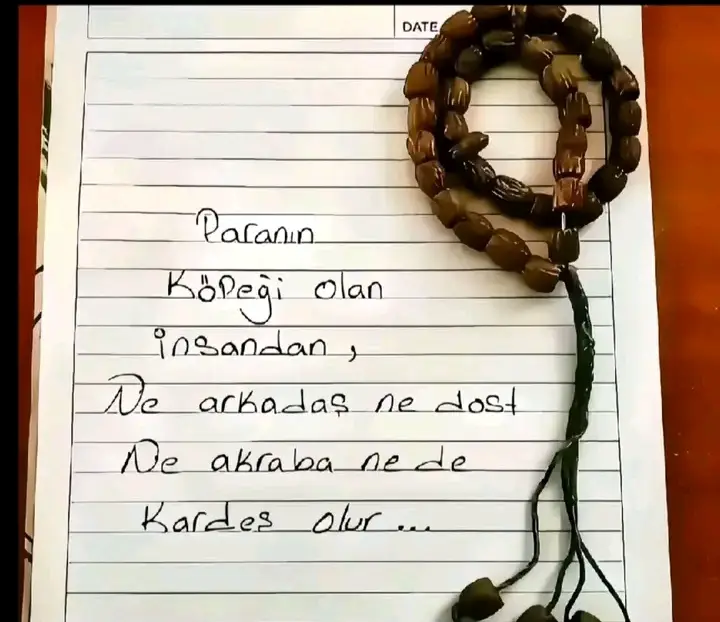 DATE
Paranın
Köpeği olan
insandan,
Ne arkadaş ne dost
Ne akraba ne de
Kardeş olur...